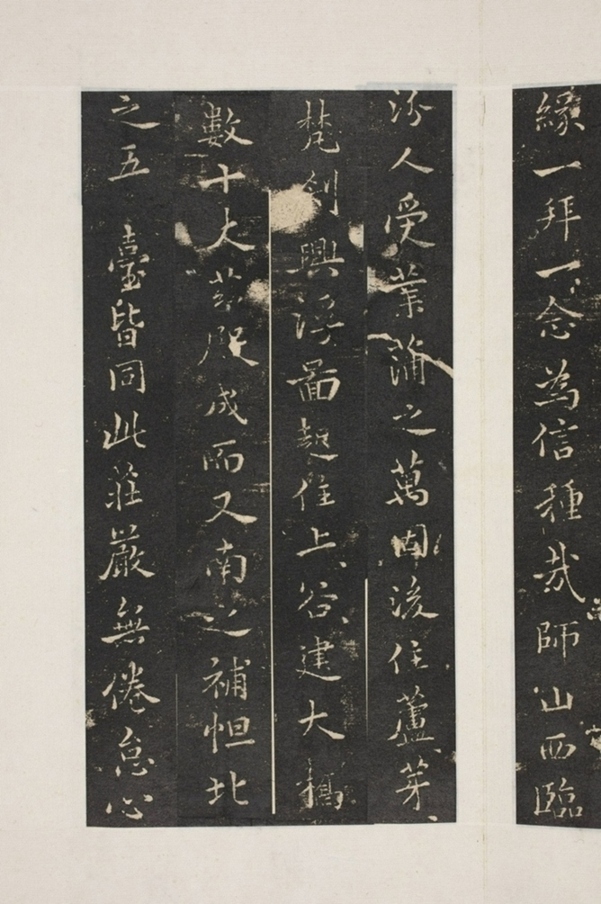 緣一拜一念為信種哉師山西臨
汾人受業蒲之萬固後住蘆芽
梵刹興浮圖起住上谷建大橋
數十大茶殿成而又南之補怛北
之五臺皆同此莊嚴無倦怠心